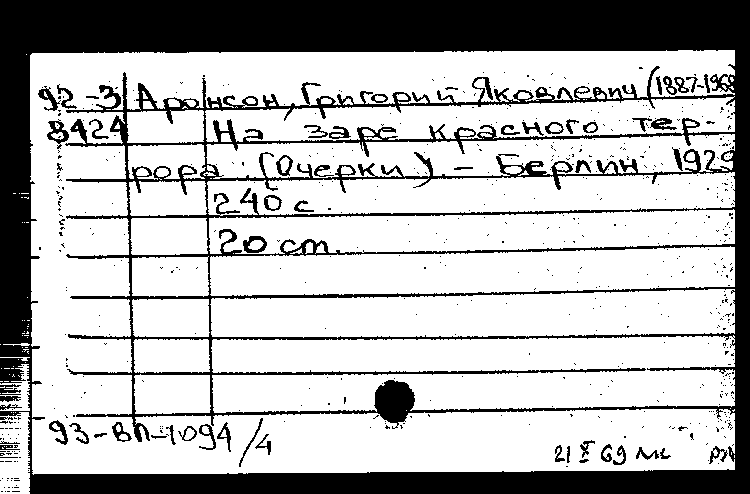 92-3 Аронсон, Григорий Яковлевич (1887-1968
8424 На заре красного тер-
рора : (Очерки). - Берлин, 1929
240 с.
20 cm.
93-ВП-1094/4
21 X 69